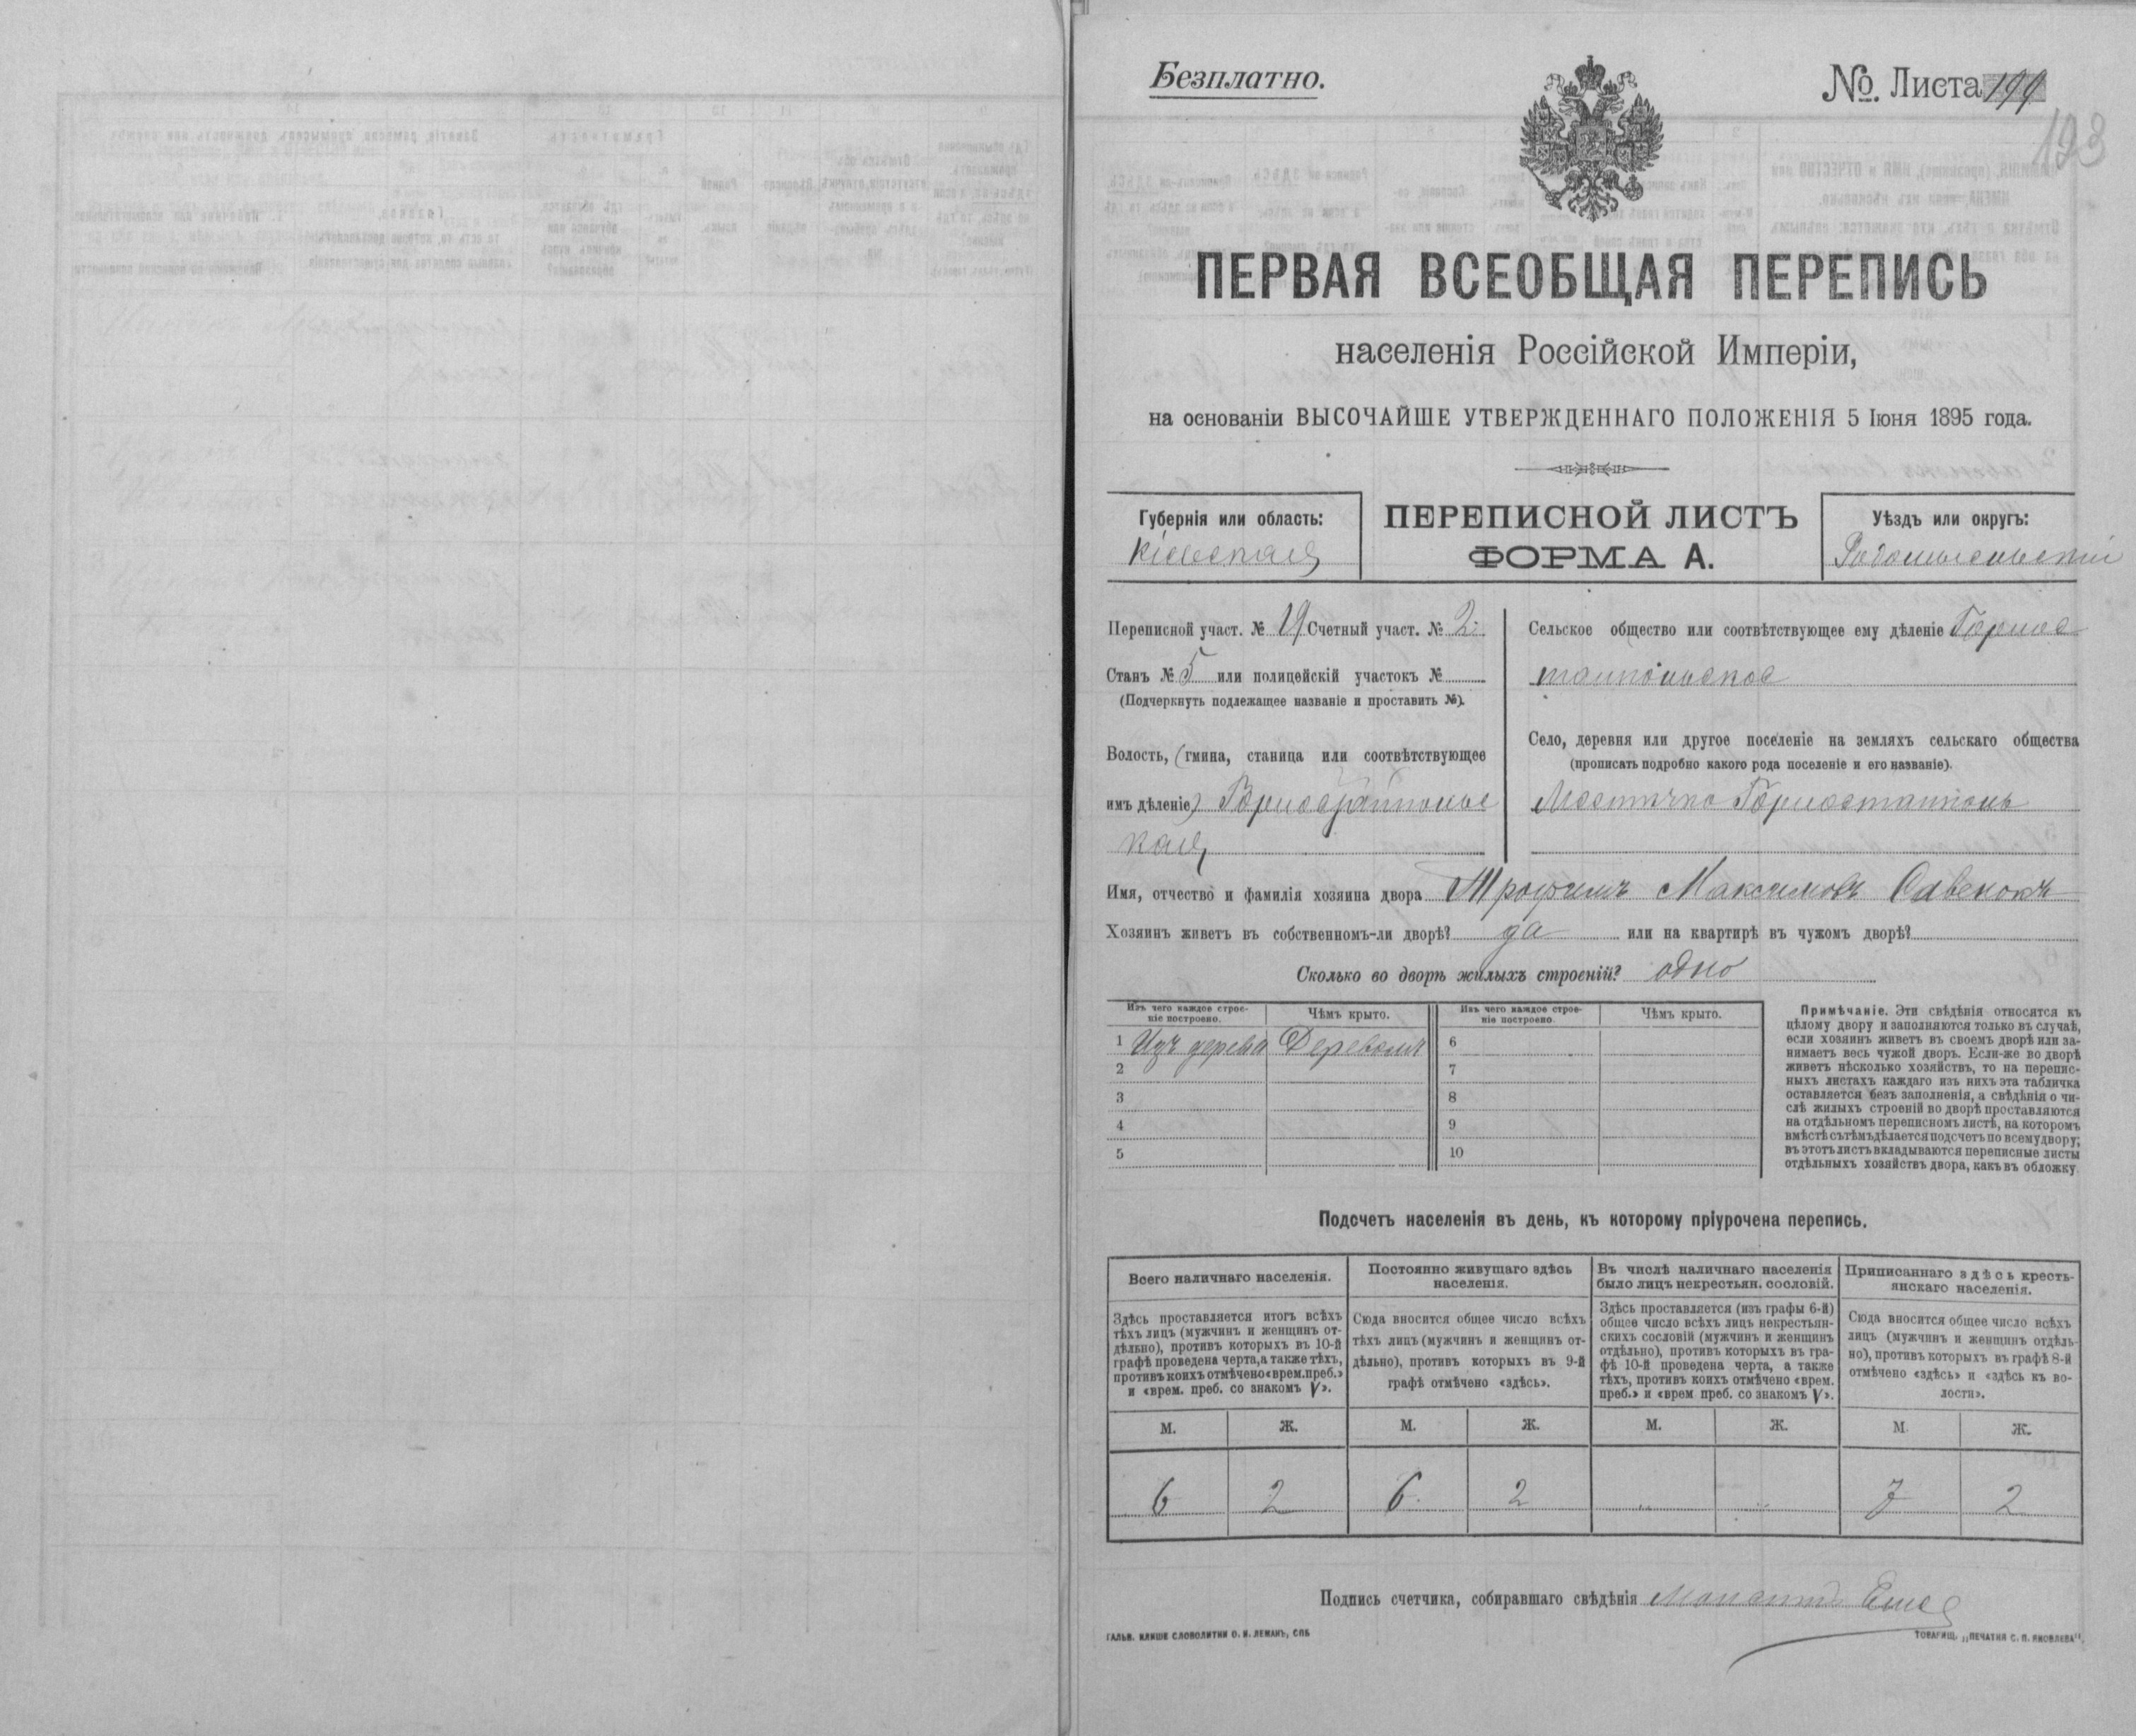 Безплатно.
№ Листа 199
193
ПЕРВАЯ ВСЕОБЩАЯ ПЕРЕПИСЬ
населенія Россійской Имперіи,
на основаніи ВЫСОЧАЙШЕ УТВЕРЖДЕННАГО ПОЛОЖЕНІЯ 5 Іюня 1895 года.
Губернія или область:
Кіевская
ПЕРЕПИСНОЙ ЛИСТЪ
ФОРМА А.
Уѣздъ или округъ:
Радомысльскій
Переписной участ. № 19 Счетный участ. № 2
Станъ № 5 или полицейскій участокъ №
(Подчеркнуть подлежащее названіе и проставить №).
Волость, (гмина, станица или соотвѣтствующее
имъ дѣленіе) Горностайполь
кая
Сельское общество или соотвѣтствующее ему дѣленіе Горнос
тайпольское
Село, деревня или другое поселеніе на земляхъ сельскаго общества
(прописать подробно какого рода поселеніе и его названіе).
Местечко Горностайполь
Имя, отчество и фамилія хозяина двора Трофимъ Максимовъ Савенокъ
Хозяинъ живетъ въ собственномъ-ли дворѣ? да или на квартирѣ въ чужомъ дворѣ?
Сколько во дворѣ жилыхъ строеній? одно
Изъ чего каждое строе-
ніе построено.
Чѣмъ крыто.
Изъ чего каждое строе-
ніе построено.
Чѣмъ крыто.
1 Изъ дерева Деревомъ 6
2 7
3 8
4 9
5 10
Примѣчаніе. Эти свѣдѣнія относятся къ
цѣлому двору и заполняются только въ случаѣ,
если хозяинъ живетъ въ своемъ дворѣ или за-
нимаетъ весь чужой дворъ. Если-же во дворѣ
живетъ нѣсколько хозяйствъ, то на перепис-
ныхъ листахъ каждаго изъ нихъ эта табличка
оставляется безъ заполненія, а свѣдѣнія о чи-
слѣ жилыхъ строеній во дворѣ проставляются
на отдѣльномъ переписномъ листѣ, на которомъ
вмѣстѣ съ тѣмъ дѣлается подсчетъ по всему двору;
въ этотъ листъ вкладываются переписные листы
отдѣльныхъ хозяйствъ двора, какъ въ обложку.
Подсчетъ населенія въ день, къ которому пріурочена перепись.
Всего наличнаго населенія.
Здѣсь проставляется итогъ всѣхъ
тѣхъ лицъ (мужчинъ и женщинъ от-
дѣльно), противъ которыхъ въ 10-й
графѣ проведена черта, а также тѣхъ,
противъ коихъ отмѣчено «врем. преб.»
и «врем. преб. со знакомъ V».
Постоянно живущаго здѣсь
населенія.
Сюда вносится общее число всѣхъ
тѣхъ лицъ (мужчинъ и женщинъ от-
дѣльно), противъ которыхъ въ 9-й
графѣ отмѣчено «здѣсь».
Въ числѣ наличнаго населенія
было лицъ некрестьян. сословій.
Здѣсь проставляется (изъ графы 6-й)
общее число всѣхъ лицъ некрестьян-
скихъ сословій (мужчинъ и женщинъ
отдѣльно), противъ которыхъ въ гра-
фѣ 10-й проведена черта, а также
тѣхъ, противъ коихъ отмѣчено «врем.
преб.» и «врем преб. со знакомъ V».
Приписаннаго здѣсь кресть-
янскаго населенія.
Сюда вносится общее число всѣхъ
лицъ (мужчинъ и женщинъ отдѣль-
но), противъ которыхъ въ графѣ 8-й
отмѣчено «здѣсь» и «здѣсь къ во-
лости».
М. Ж. М. Ж. М. Ж. М. Ж.
6 2 6 2 „ „ 7 2
Подпись счетчика, собиравшаго свѣдѣнія
ГАЛЬВ. КЛИШЕ СЛОВОЛИТНИ О. И. ЛЕМАНЪ, СПБ
ТОВАРИЩ. „ПЕЧАТНЯ С. П. ЯКОВЛЕВА".